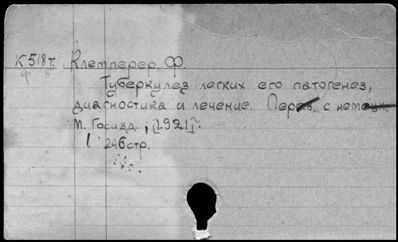 К518т. Клемперер, Ф.
Туберкулез легких его патогенез,
диагностика и лечение. Перев. с немецк.
М. Госизд., [1921].
246 стр.